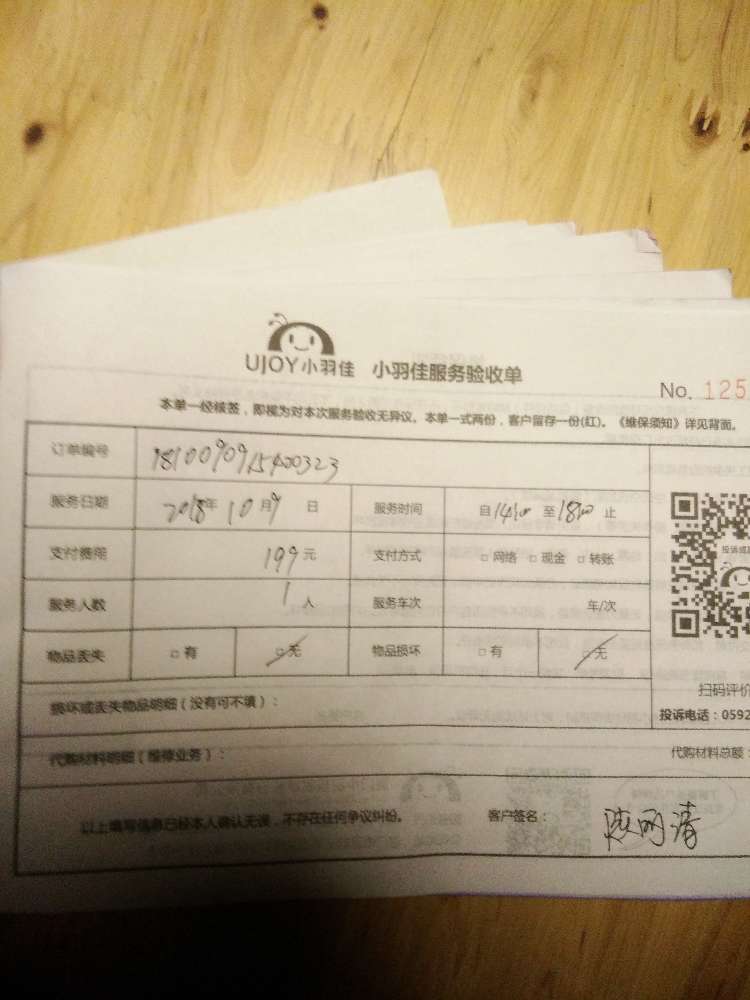 UJOY小羽佳 小羽佳服务验收单
No. 125
本单一经核签，即视为对本次服务验收无异议。本单一式两份，客户留存一份(红)。《维保须知》详见背面。
订单编号 1810090915400323
服务日期 2018年10月9日 服务时间 自14:00至18:00止
支付费用 199元 支付方式 □网络 □现金 □转账
服务人数 1人 服务车次 车/次
物品丢失 □有 □无 物品损坏 □有 □无
投诉或
扫码评价
损坏或丢失物品明细（没有可不填）：
投诉电话：0592
代购材料明细（维修业务）： 代购材料总额：
以上填写信息已经本人确认无误，不存在任何争议纠纷。 客户签名：